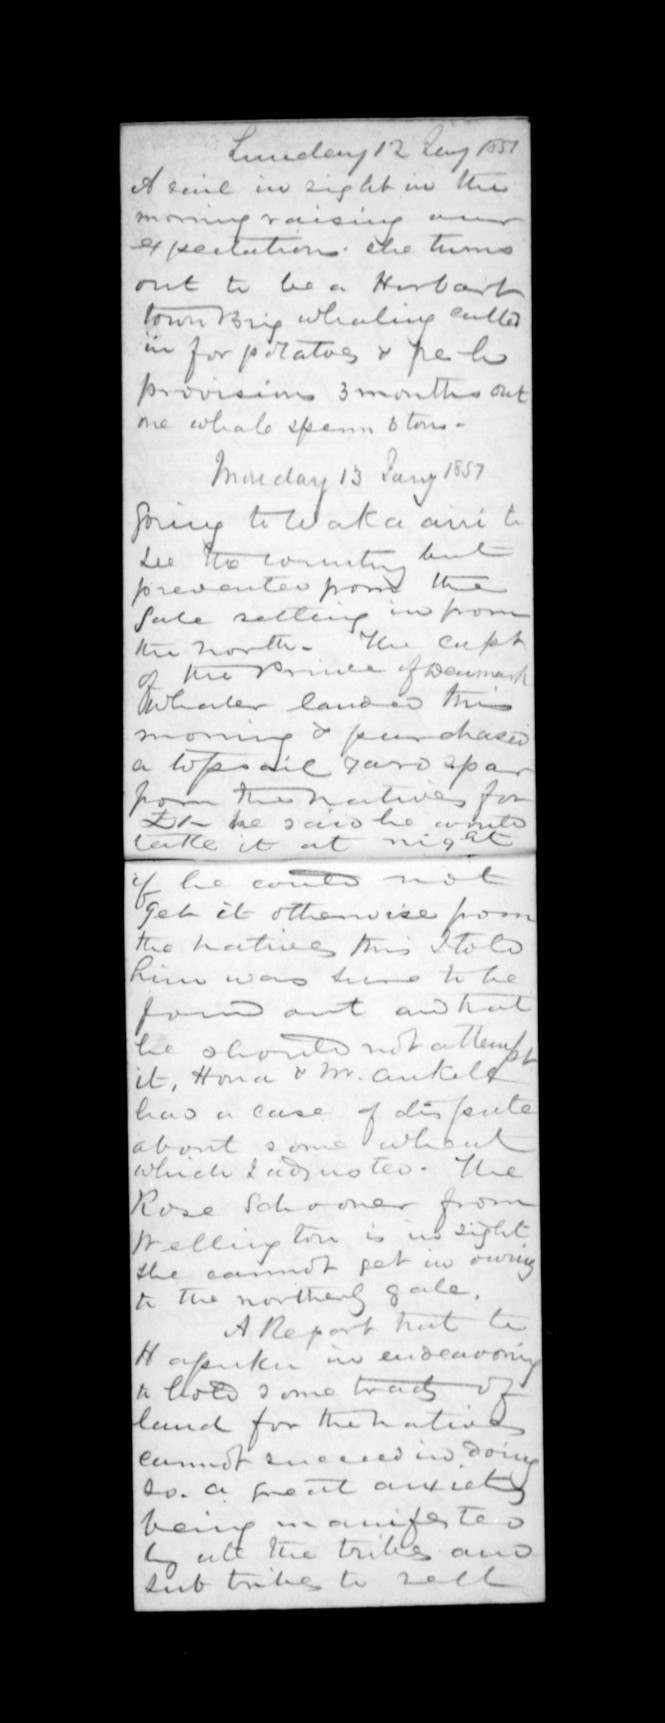 Sunday 12 Jany 1851
A sail in sight in the
morning raising our
expectations. she turns
out to be a Horbart
town Brig whaling called
in for potatoes & fresh
provisions 3 months out
one whale sperm 6 tons -
Monday 13 Jany 1851
Going to Waka airi to
see the country but
prevented from the
Gale setting in from
the north - The capt
of the Prince of Denmark
Whaler landed this
morning & purchased
a topsail yard spar
from the natives for
he said he would
take it at night
if he could not
get it otherwise from
the natives this I told
him was sure to be
found out and that
he should not attempt
it, Hona & Mr.
had a case of dispute
about some wheat
which I adjusted. The
Rose Schooner from
Wellington is in sight
she cannot get in owing
to the northerly gale.
A Report that te
Hapuku in endeavoring
to hold some tracts of
land for the natives
cannot succeed in doing
so. a great anxiety
being manifested
by all the tribes and
sub tribes to sell